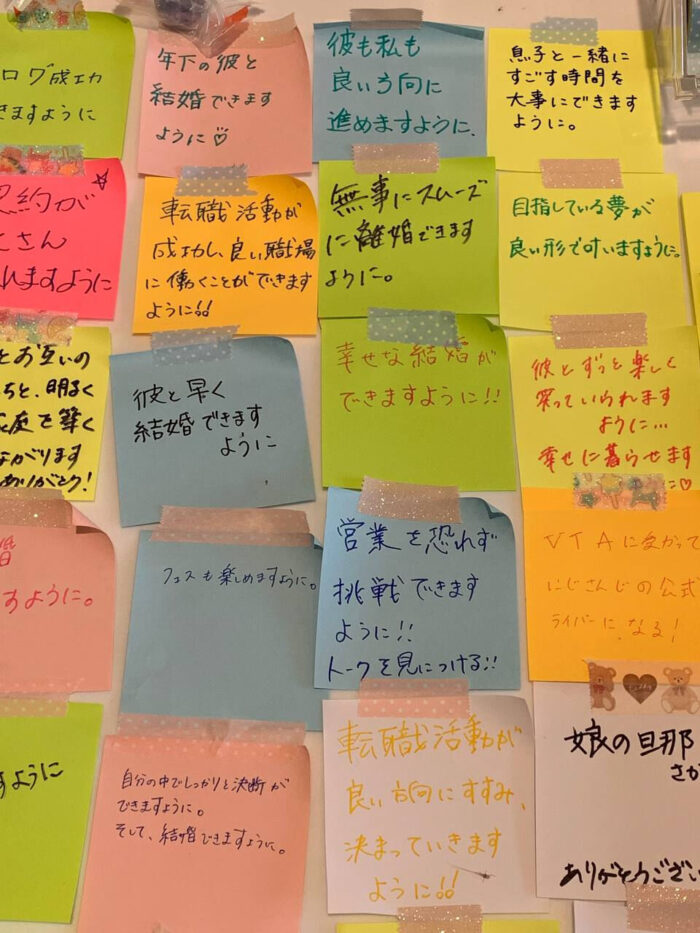 ログ成功
きますように
年下の彼と
結婚できます
ように♡
彼も私も
良い方向に
進めますように、
息子と一緒に
すごす時間を
大事にできます
ように。
約が
くさん
れますように
転職活動が
成功し、良い職場
に働くことができます
ように!!
無事にスムーズ
に離婚できます
ように。
目指している夢が
良い形で叶いますように。
とお互いの
ちと、明るく
庭を築く
ながります
ありがとう!
彼と早く
結婚できます
ように
幸せな結婚が
できますように!!
彼とずっと楽しく
笑っていられます
ように…
幸せに暮らせます
に♡
婚
すように。
フェスも楽しめますように。
営業を恐れず
挑戦できます
ように!!
トークを見につける!!
VTAに受かって
にじさんじの公式
ライバーになる!
ますように
自分の中でしっかりと決断が
できますように。
そして、結婚できますように。
転職活動が
良い方向にすすみ、
決まっていきます
ように!!
娘の旦那
さが
ありがとうござい